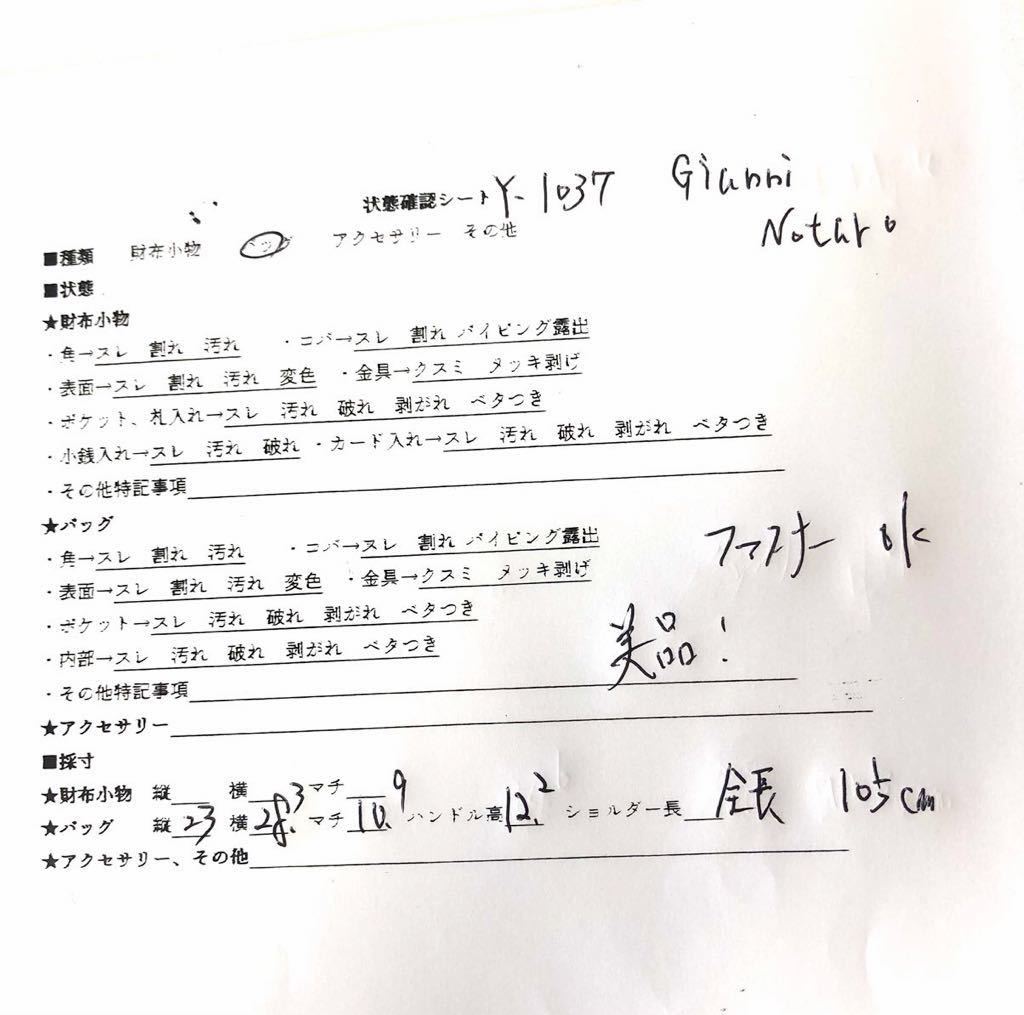 状態確認シート Y-1037 Gianni
Notaro
■種類 財布小物 バッグ アクセサリー その他
■状態
★財布小物
・角→スレ 割れ 汚れ ・コバ→スレ 割れ パイピング露出
・表面→スレ 割れ 汚れ 変色 ・金具→クスミ メッキ剥げ
・ポケット、札入れ→スレ 汚れ 破れ 剥がれ ベタつき
・小銭入れ→スレ 汚れ 破れ ・カード入れ→スレ 汚れ 破れ 剥がれ ベタつき
・その他特記事項
★バッグ
・角→スレ 割れ 汚れ ・コバ→スレ 割れ パイピング露出 ファスナー ok
・表面→スレ 割れ 汚れ 変色 ・金具→クスミ メッキ剥げ
・ポケット→スレ 汚れ 破れ 剥がれ ベタつき
・内部→スレ 汚れ 破れ 剥がれ ベタつき 美品!
・その他特記事項
★アクセサリー
■採寸
★財布小物 縦 横 マチ
★バッグ 縦23 横28.3 マチ10.9 ハンドル高12.2 ショルダー長 全長 105cm
★アクセサリー、その他